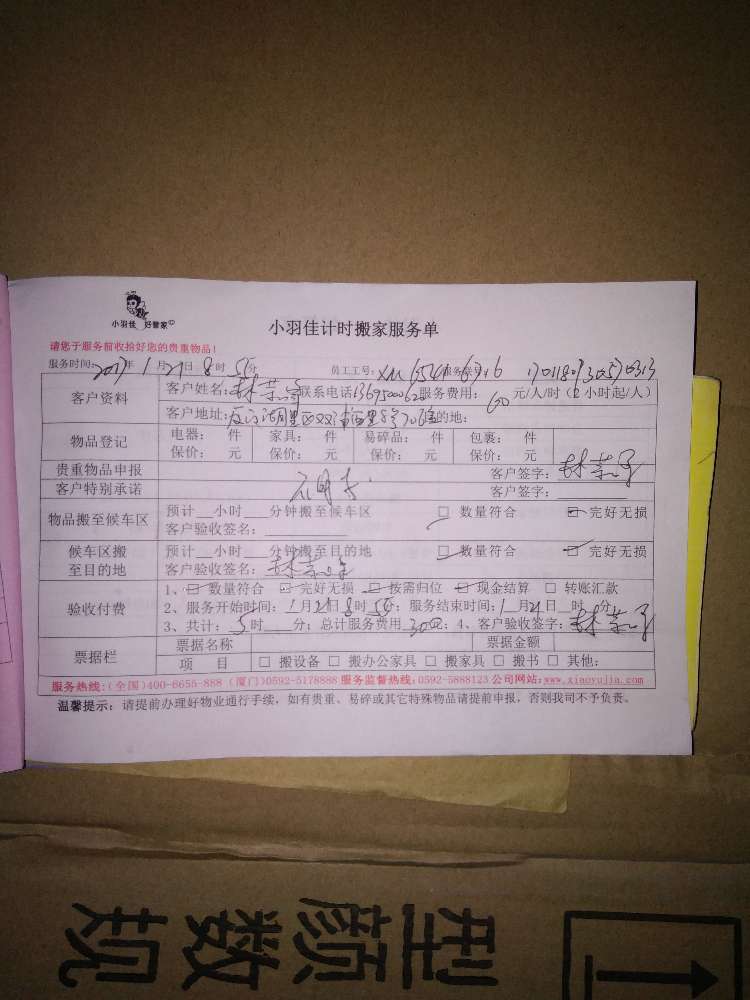 小羽佳 好管家
小羽佳计时搬家服务单
请您于服务前收拾好您的贵重物品!
服务时间: 2017年 1月21日 8时 员工工号: 服务账号:
客户资料 客户姓名: 林 联系电话 服务费用: 60 元/人/时(2小时起/人)
客户地址: 目的地:
物品登记 电器: 件 家具: 件 易碎品: 件 包裹: 件
保价: 元 保价: 元 保价: 元 保价: 元
贵重物品申报 客户签字: 林
客户特别承诺 客户签字:
物品搬至候车区 预计__小时__分钟搬至候车区 □ 数量符合 □ 完好无损
客户验收签名:
候车区搬至目的地 预计__小时__分钟搬至目的地 □ 数量符合 □ 完好无损
客户验收签名: 林
验收付费 1、□ 数量符合 □ 完好无损 □ 按需归位 □ 现金结算 □ 转账汇款
2、服务开始时间: 1月21日8时 分; 服务结束时间: 1月21日 时 分
3、共计: 5时 分; 总计服务费用 300元; 4、客户验收签字: 林
票据栏 票据名称 票据金额
项 目 □ 搬设备 □ 搬办公家具 □ 搬家具 □ 搬书 □ 其他:
服务热线:(全国)400-8655-888 (厦门)0592-5178888 服务监督热线:0592-5888123 公司网站:www.xiaoyujia.com
温馨提示: 请提前办理好物业通行手续, 如有贵重、易碎或其它特殊物品请提前申报, 否则我司不予负责。
型颜数规